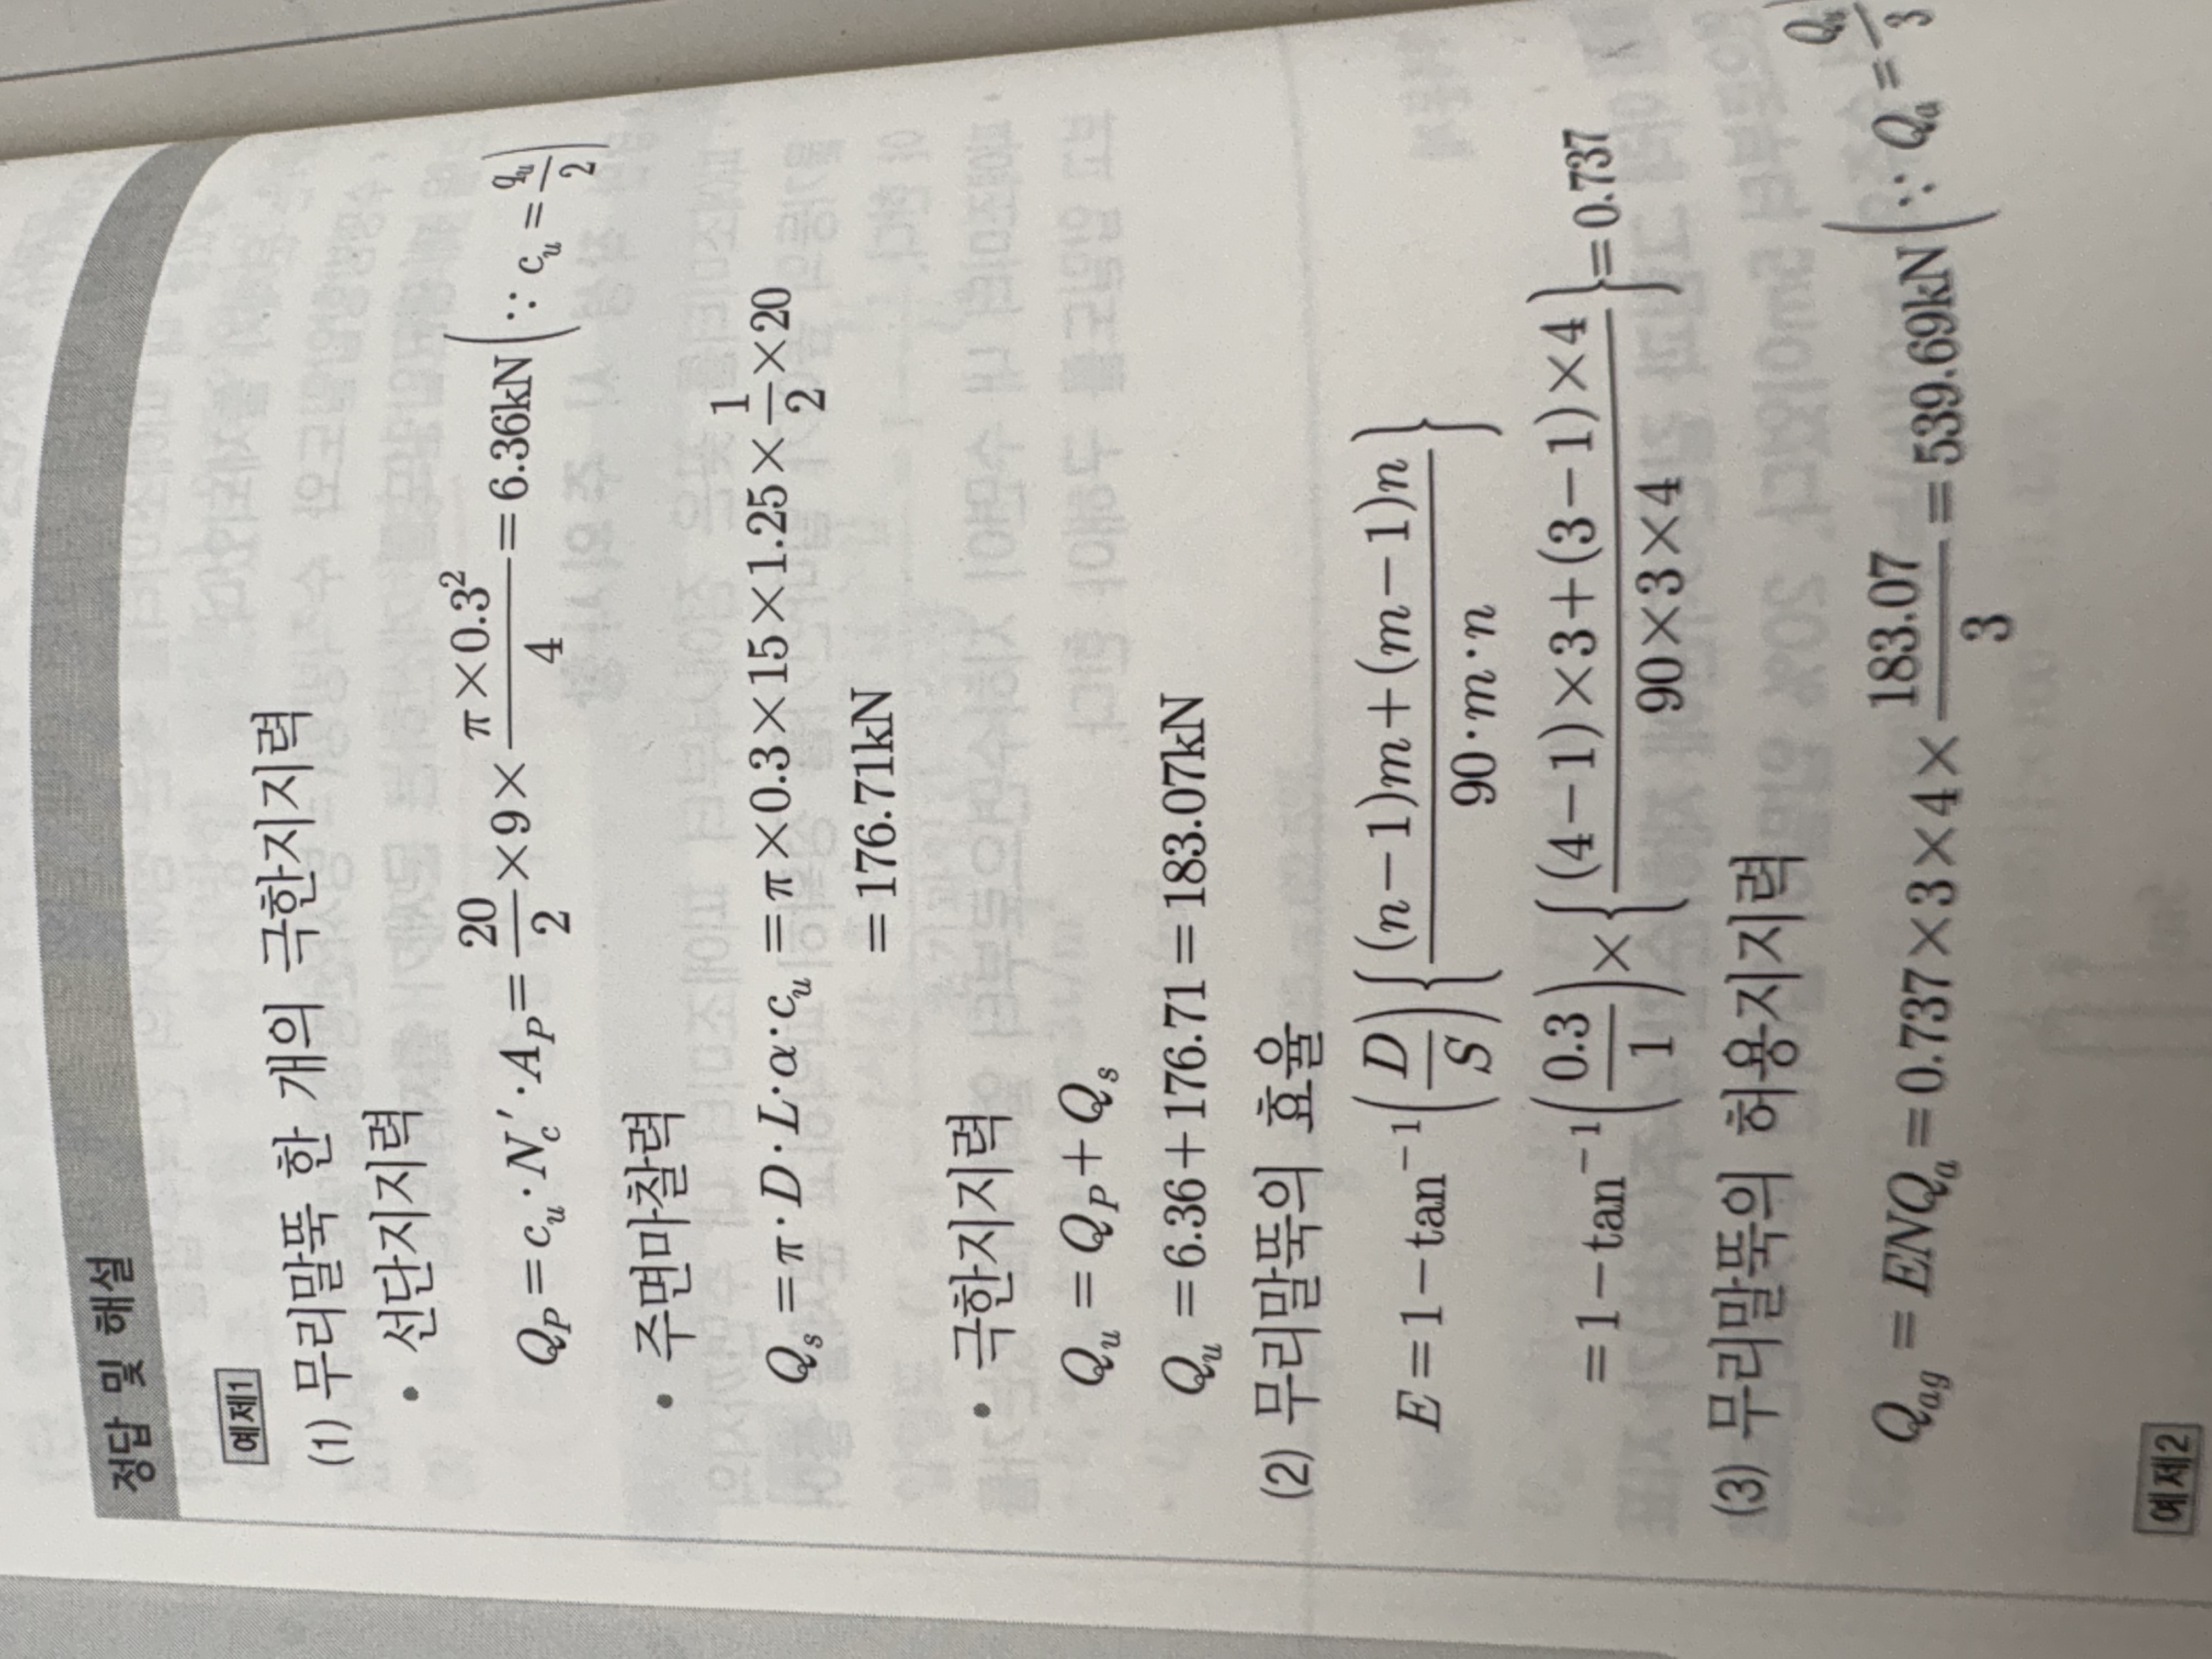 정답 및 해설
예제1
(1) 무리말뚝 한 개의 극한지지력
• 선단지지력
Q_P = c_u · N_c′ · A_P = 20/2 × 9 × (π×0.3²)/4 = 6.36kN (∵ c_u = q_u/2)
• 주면마찰력
Q_s = π · D · L · α · c_u = π × 0.3 × 15 × 1.25 × 1/2 × 20
= 176.71kN
• 극한지지력
Q_u = Q_P + Q_s
Q_u = 6.36 + 176.71 = 183.07kN
(2) 무리말뚝의 효율
E = 1 − tan⁻¹(D/S){((n−1)m + (m−1)n)/(90 · m · n)}
= 1 − tan⁻¹(0.3/1) × {((4−1)×3 + (3−1)×4)/(90×3×4)} = 0.737
(3) 무리말뚝의 허용지지력
Q_ag = ENQ_a = 0.737 × 3 × 4 × 183.07/3 = 539.69kN (∵ Q_a = Q_u/3
예제2